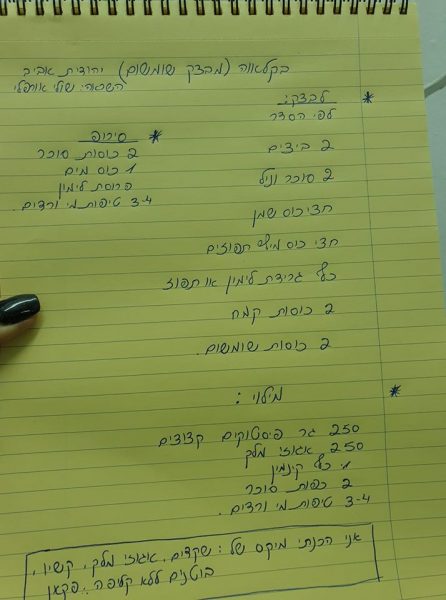 בקלאווה (מבצק שומשום) יהודית אביב
השראה: שולי אורפלי
* לבצק:
לפי הסדר
2 ביצים
2 סוכר וניל
חצי כוס שמן
חצי כוס מיץ תפוזים
כף גרידת לימון או תפוז
2 כוסות קמח
2 כוסות שומשום.
* סירופ
2 כוסות סוכר
1 כוס מים
פרוסת לימון
3-4 טיפות מי ורדים.
* מילוי:
250 גר פיסטוקים קצוצים
250 אגוזי מלך
1 כף קינמון
2 כפות סוכר
3-4 טיפות מי ורדים.
אני הכנתי מיקס של: שקדים, אגוזי מלך, קשיו,
בוטנים ללא קליפה, פקאן